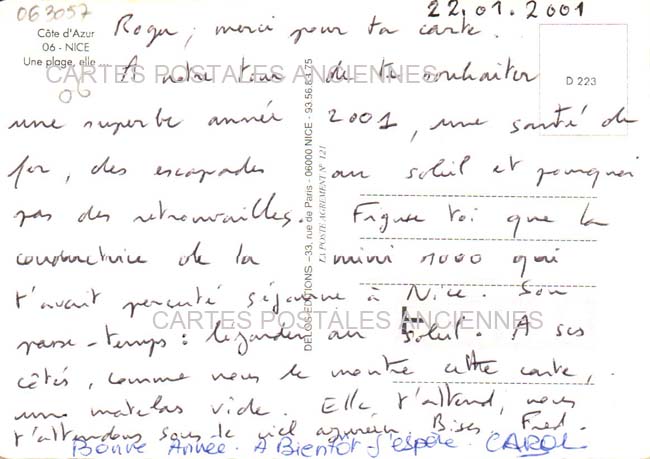 063057
22.01.2001
Côte d'Azur
06 - NICE
Une plage, elle ....
06
D 223
CARTES POSTALES ANCIENNES
DELOS-EDITIONS – 33, rue de Paris - 06000 NICE - 93.56.81.75
LA POSTE AGREMENT N° 121
Roger, merci pour ta carte.
A notre tour de te souhaiter
une superbe année 2001, une santé de
fer, des escapades au soleil et pourquoi
pas des retrouvailles. Figure toi que la
conductrice de la mini 1000 qui
t'avait percuté séjourne à Nice. Son
CARTES POSTALES ANCIENNES
passe-temps : lézarder au soleil. A ses
côtés, comme nous le montre cette carte,
une matelas vide. Elle t'attend, nous
t'attendons sous le ciel azuréen. Bises. Fred.
BONNE ANNÉE. A BIENTÔT J'ESPÈRE. CAROL